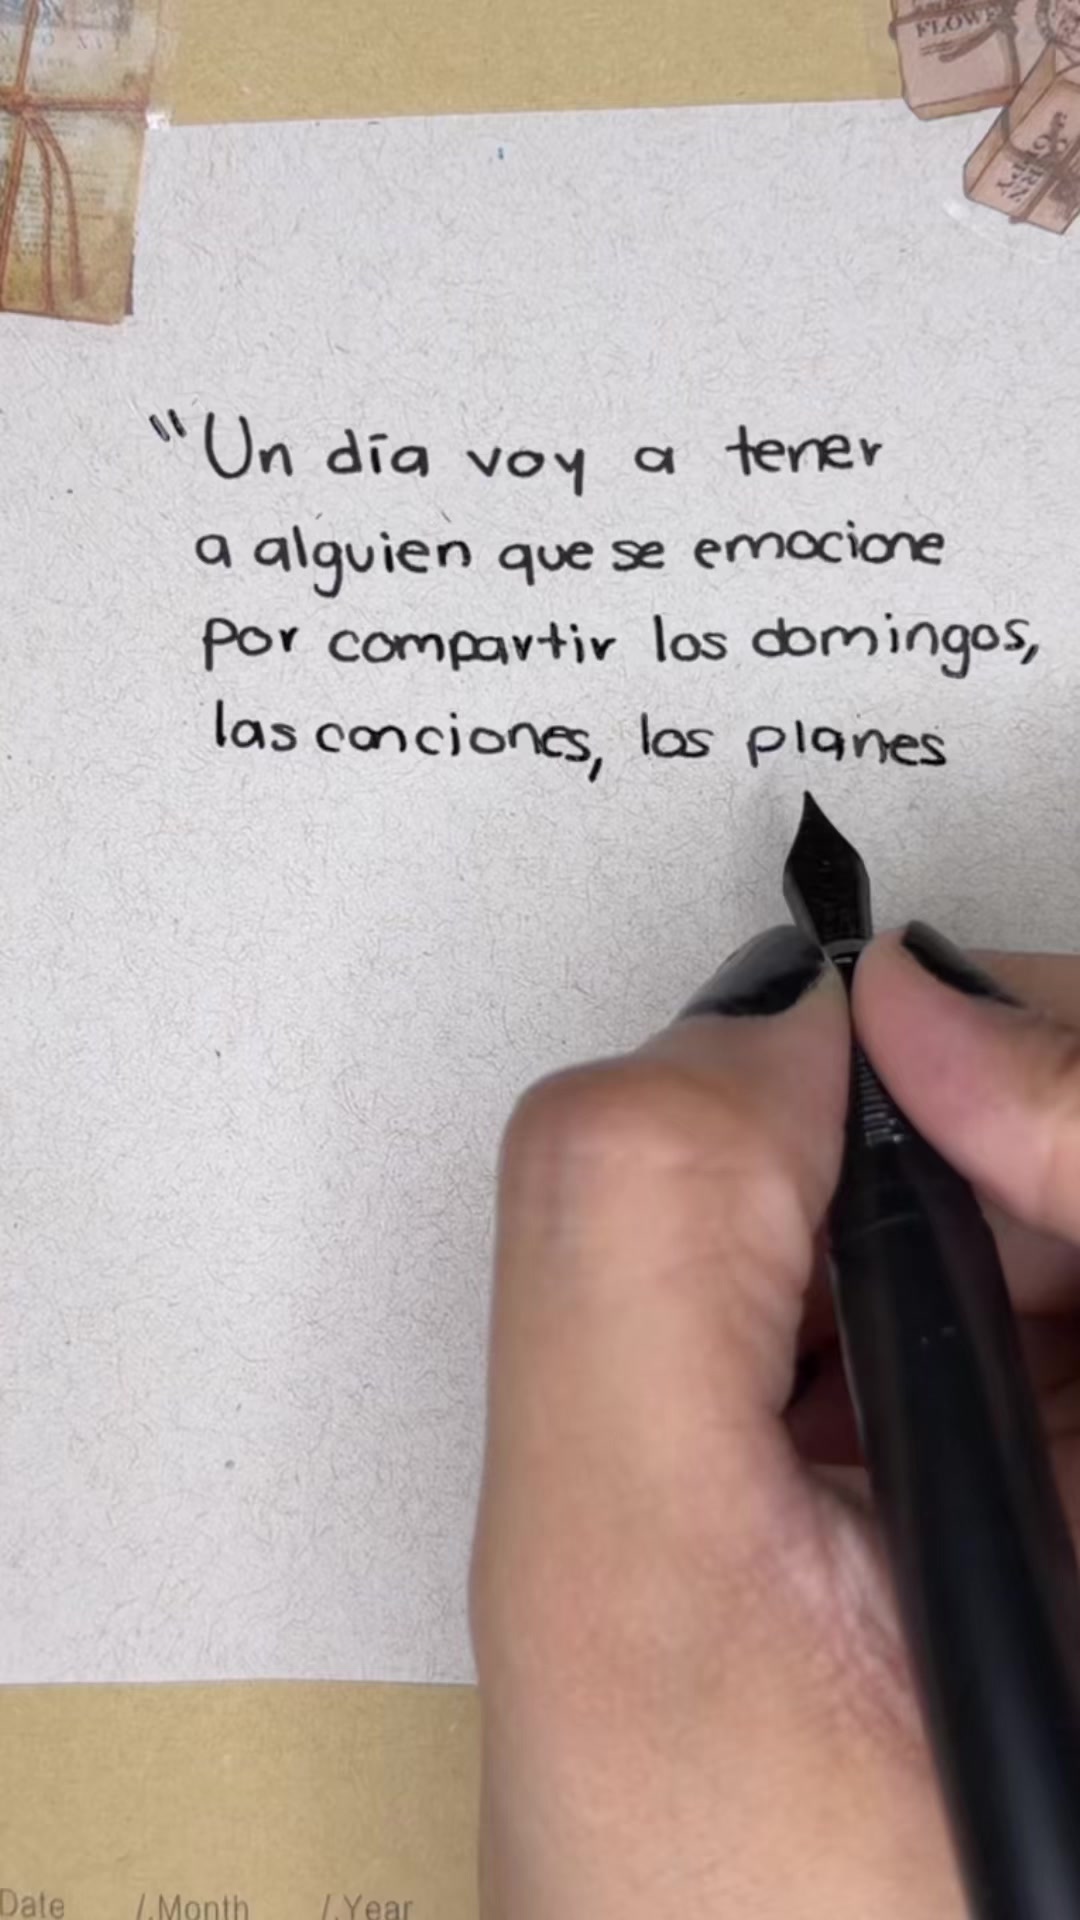 FLOWE
"Un día voy a tener
a alguien que se emocione
por compartir los domingos,
las canciones, los planes
Date /.Month /.Year